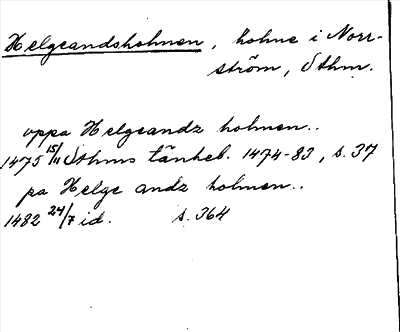 Helgeandsholmen, holme i Norr-
ström, Sthm.
uppa Helgeandz holmen..
1475 15/11 Sthms tänkeb. 1474-83, s. 37
pa Helge andz holmen..
1482 24/7 id. s. 364